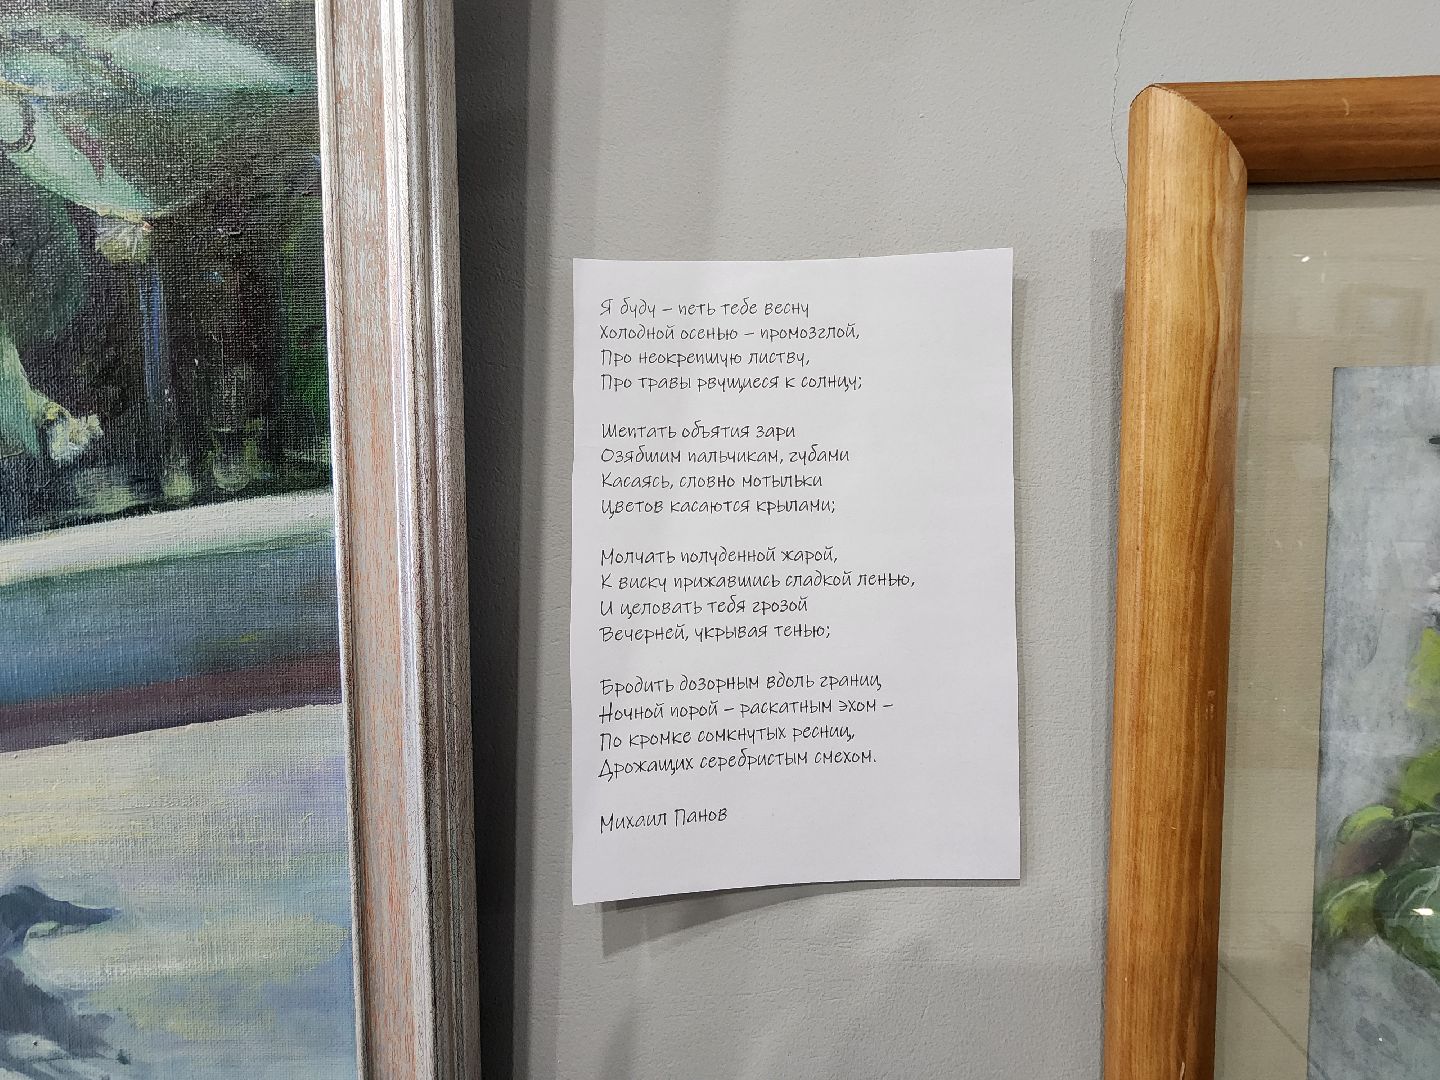 Я буду – петь тебе весну
Холодной осенью – промозглой,
Про неокрепшую листву,
Про травы рвущиеся к солнцу;
Шептать объятия зари
Озябшим пальчикам, губами
Касаясь, словно мотыльки
Цветов касаются крылами;
Молчать полуденной жарой,
К виску прижавшись сладкой ленью,
И целовать тебя грозой
Вечерней, укрывая тенью;
Бродить дозорным вдоль границ
Ночной порой – раскатным эхом –
По кромке сомкнутых ресниц,
Дрожащих серебристым смехом.
Михаил Панов